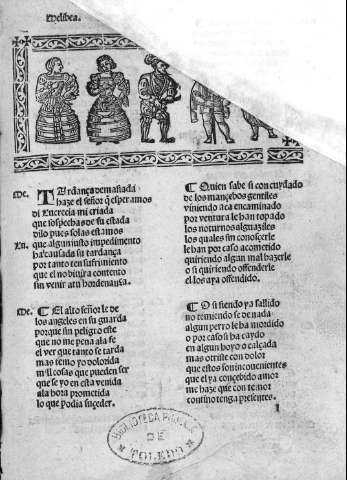 Melibea.
Me. TArdança demasiada
haze el señor q̃ esperamos
di Lucrecia mi criada
que sospechas de su estada
dilo pues solas estamos
Lu. que algun justo impedimento
ha causado su tardança
por tanto ten sufrimiento
que el no biuira contento
sin venir a tu hordenança.
Me. ¶ El alto señor le de
los angeles en su guarda
porque sin peligro este
que no me pena a la fe
el ver que tanto se tarda
mas temo yo dolorida
mil cosas que pueden ser
que se yo en esta venida
a la hora prometida
lo que podia suceder.
¶ Quien sabe si con cuydado
de los mancebos gentiles
viniendo aca encaminado
por ventura le han topado
los noturnos alguaziles
los quales sin conoscerle
le han por caso acometido
quiriendo algun mal hazerle
o si quiriendo offenderle
el los aya offendido.
¶ O si siendo ya sallido
no temiendo se de nada
algun perro le ha mordido
o por caso si ha caydo
en algun hoyo o calçada
mas o triste con dolor
que estos son incouenientes
que el ya concebido amor
me haze que con temor
contino tenga presentes.
BIBLIOTECA PUBLICA
DE
TOLEDO